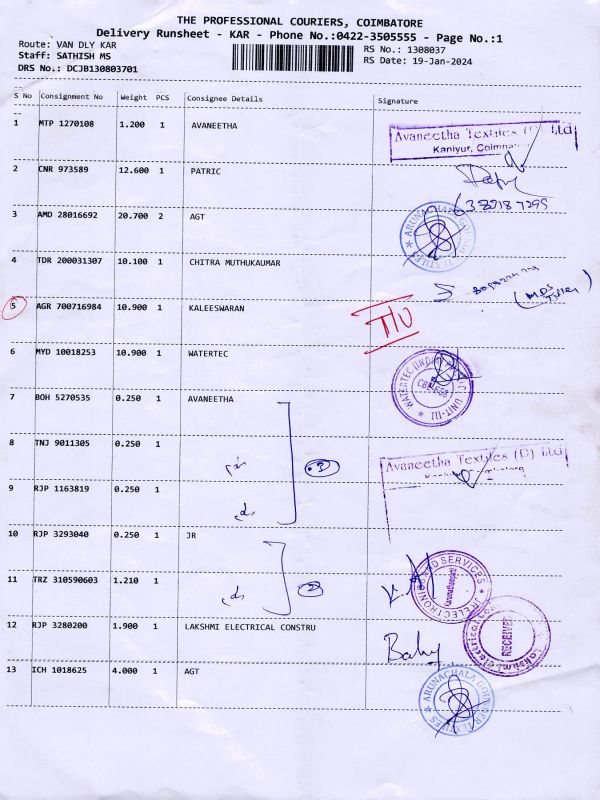 THE PROFESSIONAL COURIERS, COIMBATORE
Delivery Runsheet - KAR - Phone No.:0422-3505555 - Page No.:1
Route: VAN DLY KAR
RS No.: 1308037
Staff: SATHISH MS
RS Date: 19-Jan-2024
DRS No.: DCJB130803701
S No Consignment No Weight PCS Consignee Details Signature
1 MTP 1270108 1.200 1 AVANEETHA
Avaneetha Textiles (P) Ltd
Kaniyur,
2 CNR 973589 12.600 1 PATRIC
3 AMD 28016692 20.700 2 AGT
ARUNACHALA
TEXTILES
4 TDR 200031307 10.100 1 CHITRA MUTHUKAUMAR
5 AGR 700716984 10.900 1 KALEESWARAN
T/U
6 MYD 10018253 10.900 1 WATERTEC
WATERTEC UNIT-III
7 BOH 5270535 0.250 1 AVANEETHA
8 TNJ 9011305 0.250 1
Avaneetha Textiles (P) Ltd
9 RJP 1163819 0.250 1
10 RJP 3293040 0.250 1 JR
11 TRZ 310590603 1.210 1
2
JR ELECTRONIC SERVICES
12 RJP 3280200 1.900 1 LAKSHMI ELECTRICAL CONSTRU
Baby
RECEIVED
13 ICH 1018625 4.000 1 AGT
ARUNACHALA